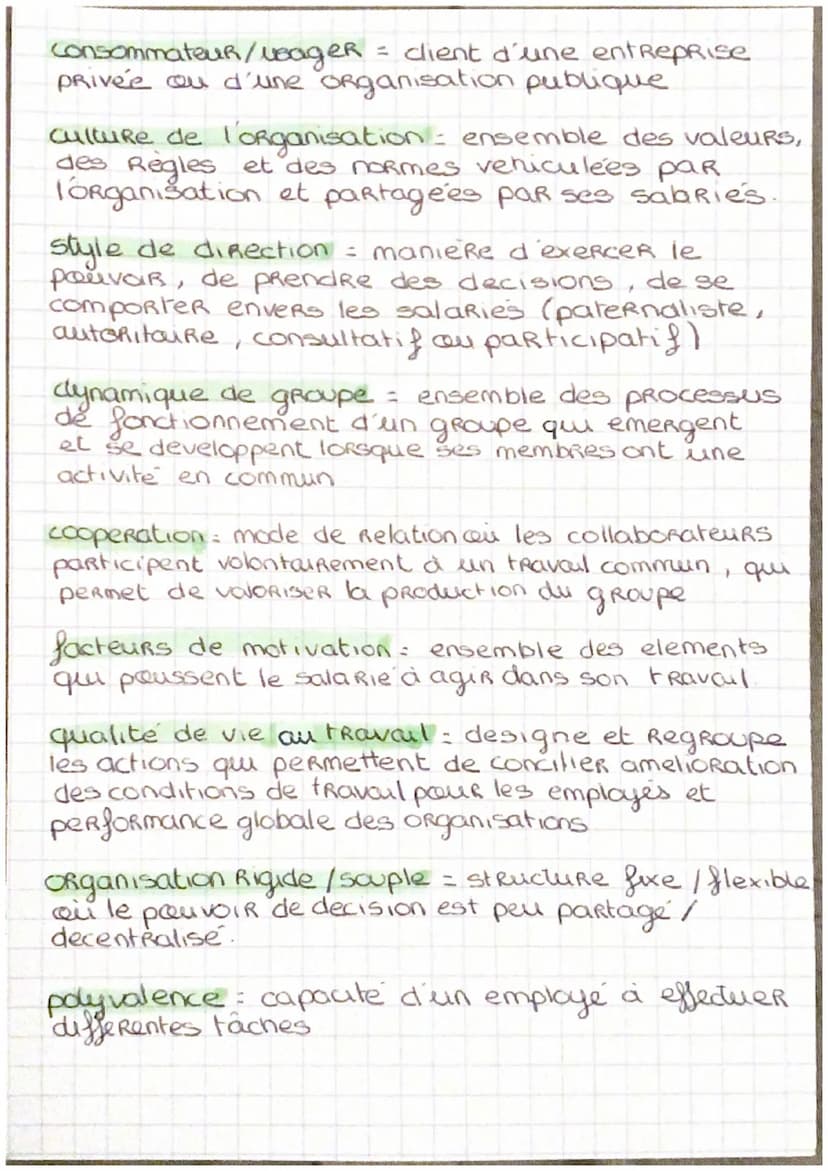 consommateur/usager = client d'une entreprise
privée ou d'une organisation publique
culture de l'organisation = ensemble des valeurs,
des règles et des normes vehiculées par
l'organisation et partagées par ses salariés.
style de direction = manière d'exercer le
pouvoir, de prendre des decisions, de se
comporter envers les salariés (paternaliste,
autoritaire, consultatif ou participatif)
dynamique de groupe = ensemble des processus
de fonctionnement d'un groupe qui émergent
et se developpent lorsque ses membres ont une
activité en commun
cooperation = mode de relation où les collaborateurs
participent volontairement à un travail commun, qui
permet de valoriser la production du groupe
facteurs de motivation = ensemble des elements
qui poussent le salarié à agir dans son travail.
qualité de vie au travail = designe et regroupe
les actions qui permettent de concilier amelioration
des conditions de travail pour les employés et
performance globale des organisations
organisation rigide/souple = structure fixe/flexible
où le pouvoir de decision est peu partagé/
decentralisé.
polyvalence = capacité d'un employé à effectuer
différentes tâches